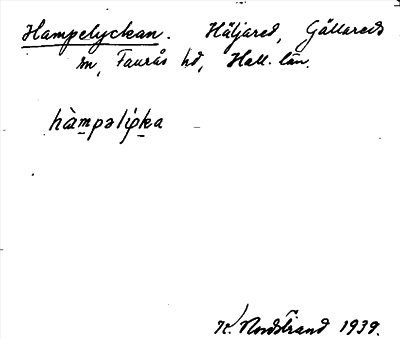 Hampelyckan. Häljared, Gällareds
sn, Faurås hd, Hall. län.
hàm̠pəliƥk̠a
K. Nordstrand 1939.